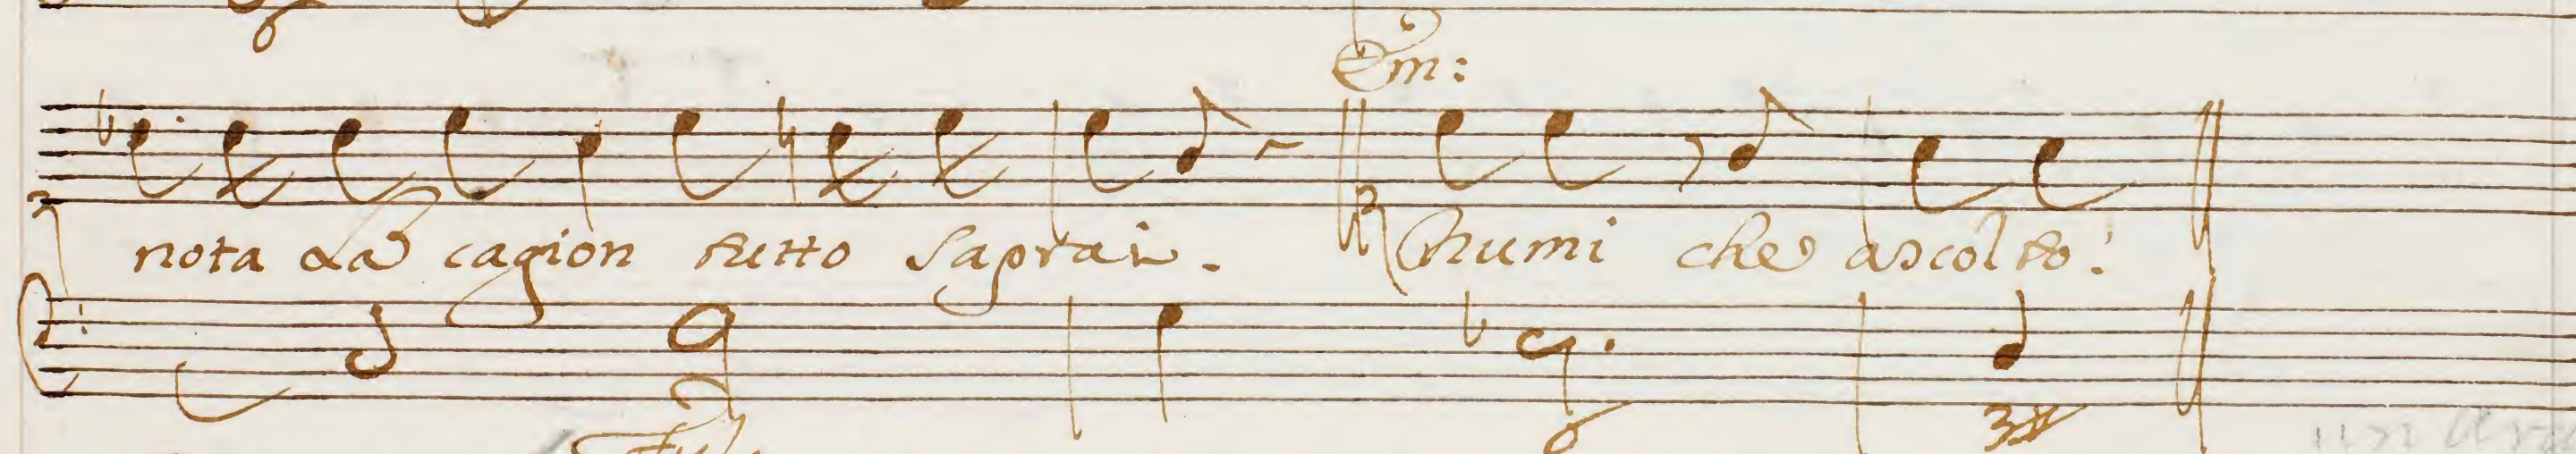 Em:
nota la cagion tutto saprai. Numi che ascolto!
6 3#